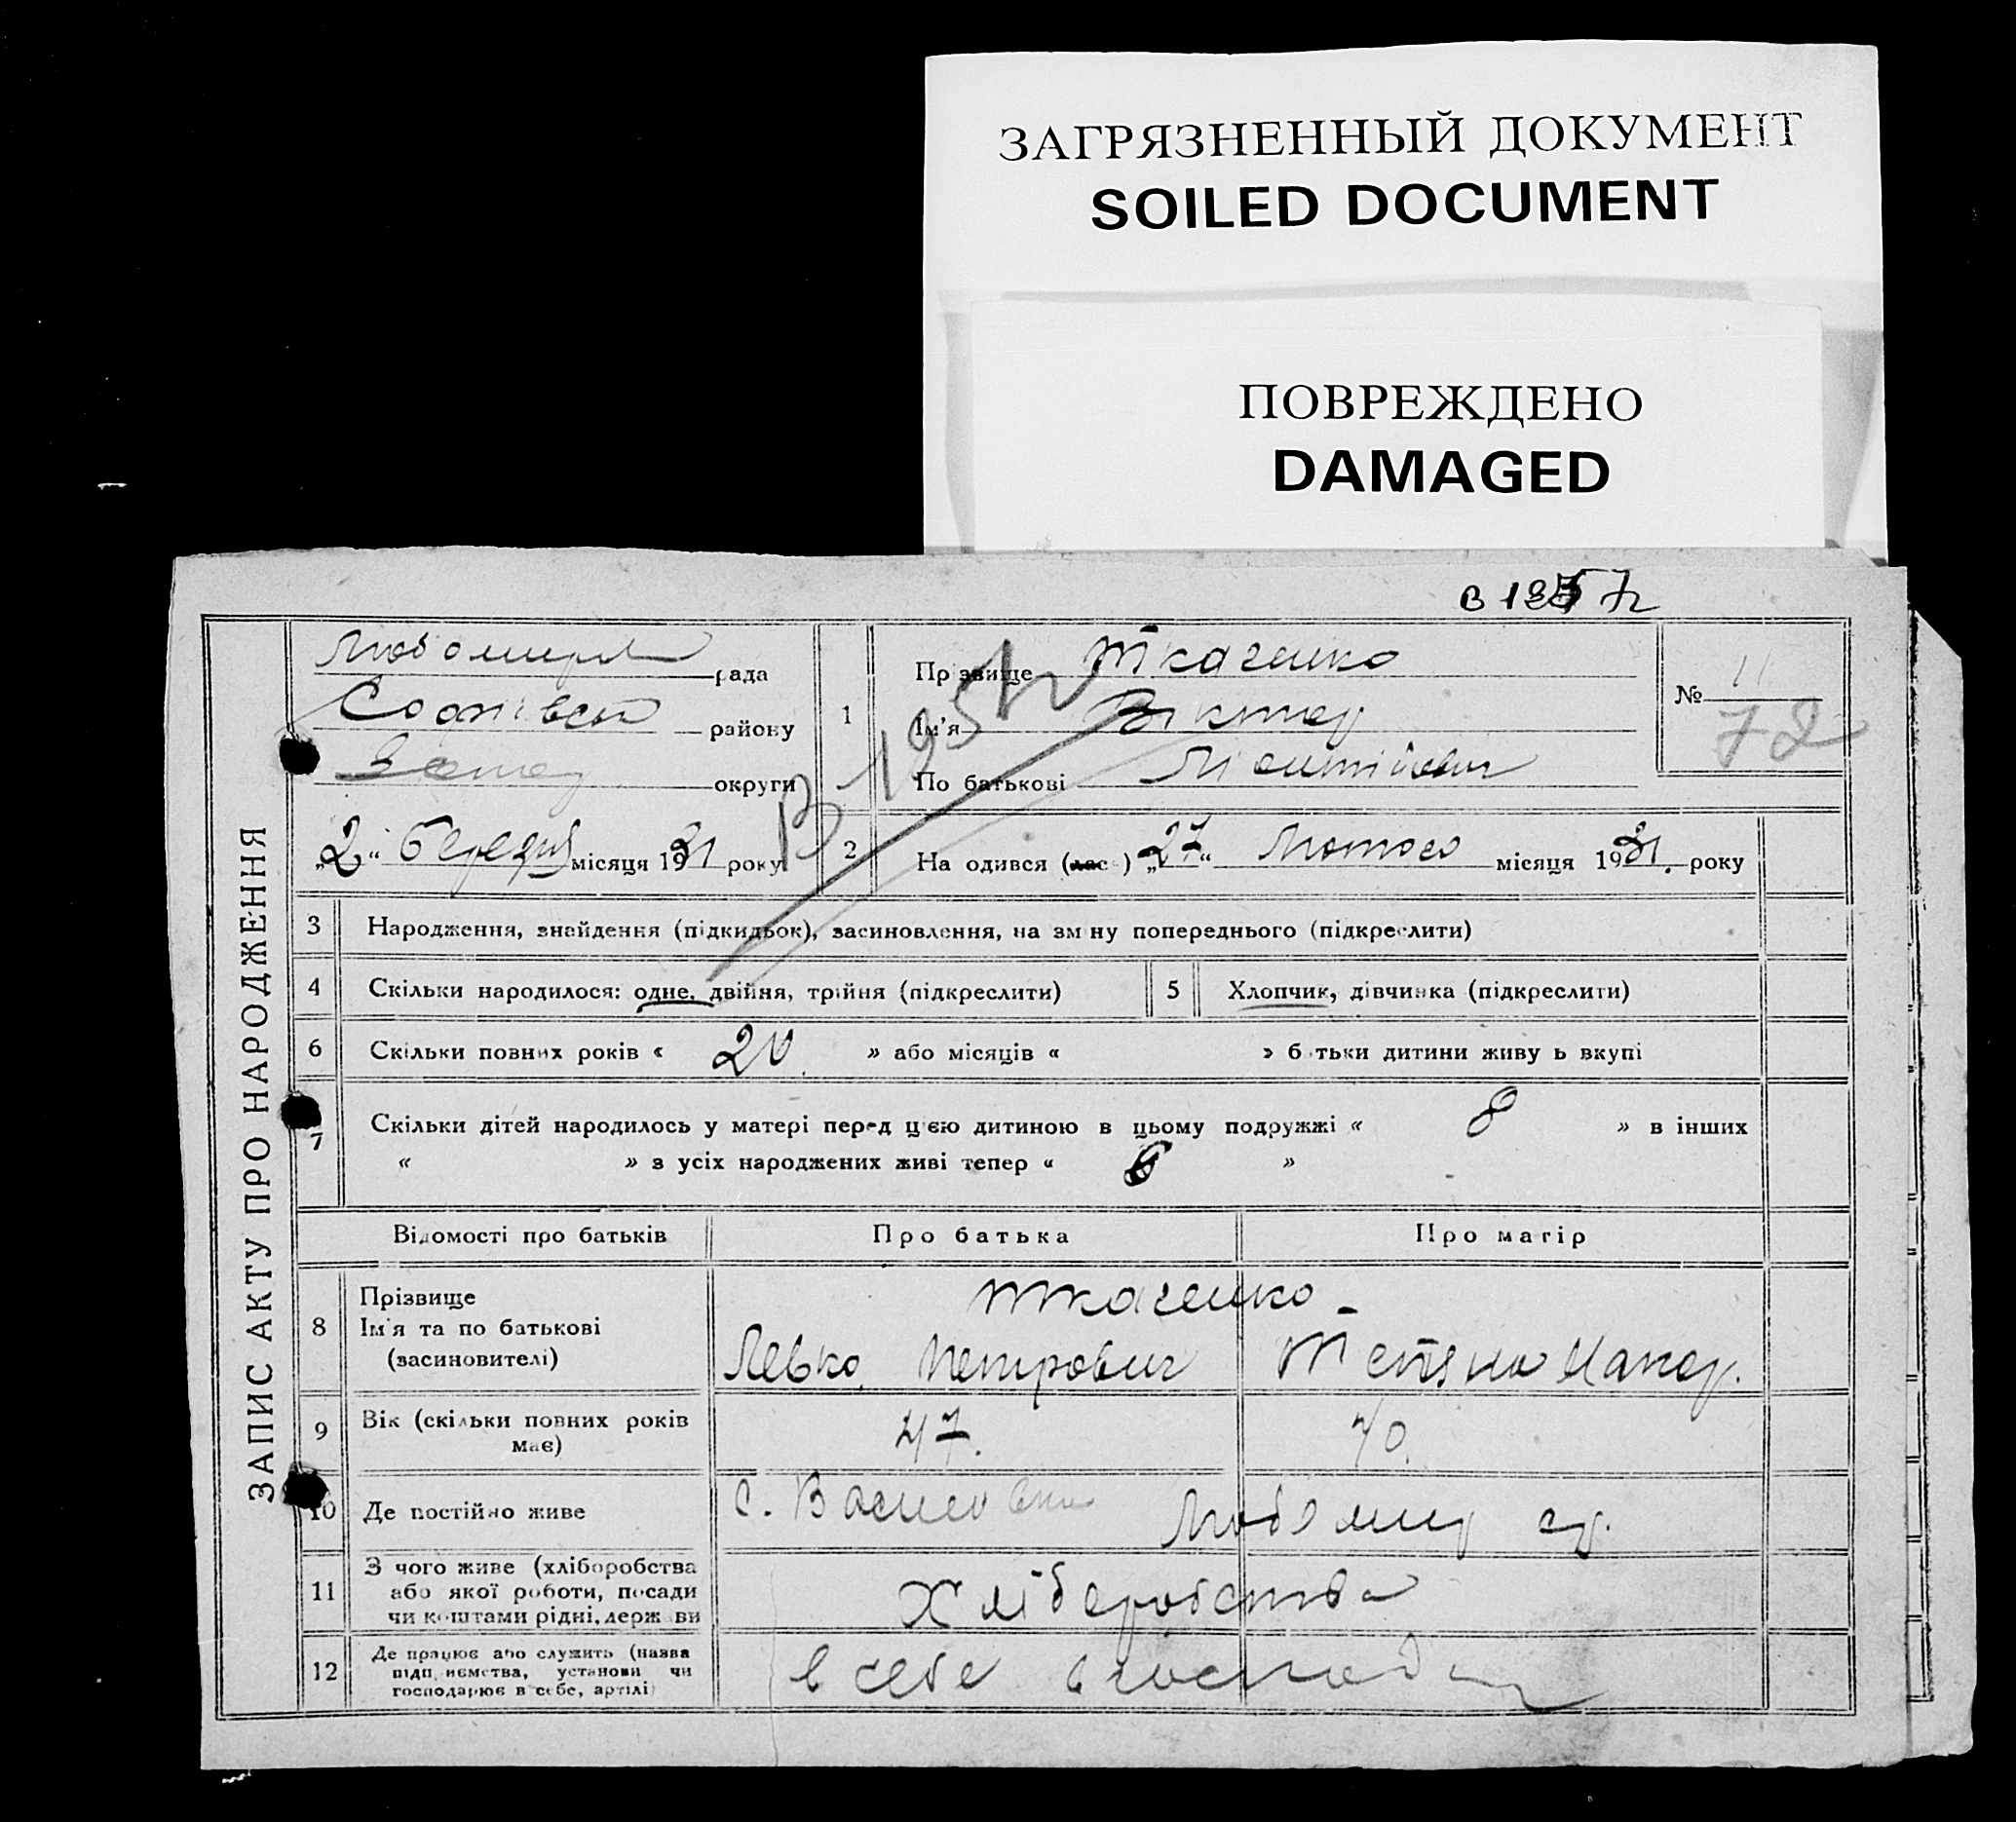 ЗАГРЯЗНЕННЫЙ ДОКУМЕНТ
SOILED DOCUMENT
ПОВРЕЖДЕНО
DAMAGED
рада
району
округи
1
Прізвище Ткаченко
Ім'я Віктор
По батькові
№ 11
72
В 195
„2“ березня місяця 1931 року
2
На одився ( ) „27“ Лютого місяця 1931 року
ЗАПИС АКТУ ПРО НАРОДЖЕННЯ
3 Народження, знайдення (підкидьок), засиновлення, на зміну попереднього (підкреслити)
4 Скільки народилося: одне, двійня, трійня (підкреслити)
5 Хлопчик, дівчинка (підкреслити)
6 Скільки повних років « 20 » або місяців « » батьки дитини живуть вкупі
7 Скільки дітей народилось у матері перед цією дитиною в цьому подружжі « 8 » в інших
« » з усіх народжених живі тепер « 6 »
Відомості про батьків Про батька Про матір
8 Прізвище
Ім'я та по батькові
(засиновителі)
Ткаченко
Левко Петрович Тетяна Макар.
9 Вік (скільки повних років має)
47. 40.
10 Де постійно живе
с.
11 З чого живе (хліборобства
або якої роботи, посади
чи коштами рідні, держави
Хліборобства
12 Де працює або служить (назва
підприємства, установи чи
господарює в себе, артілі)
в себе в господ